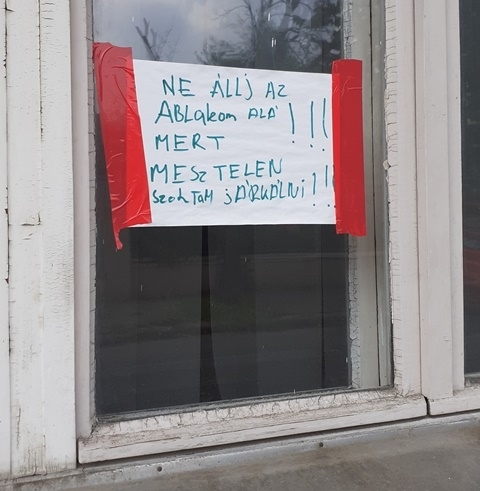 NE ÁLLJ AZ
ABLAKOM ALÁ !!!
MERT
MESZTELEN
SZOKTAM JÁRKÁLNI!!!